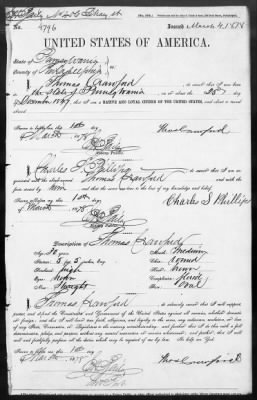 No. 4796
Issued March 4. 1878
UNITED STATES OF AMERICA.
State of Pennsylvania
County of Philadelphia
I, Thomas Crawford, do swear that I was born
in the State of Pennsylvania, on or about the 25 day
of December 1847, that I am a NATIVE AND LOYAL CITIZEN OF THE UNITED STATES, and about to travel
abroad.
Sworn to before me, this 1st day
of March 1878
Thos Crawford
NOTARY PUBLIC.
I, Charles S. Phillips, do swear that I am
acquainted with the above named Thomas Crawford, and with the
facts stated by him, and that the same are true to the best of my knowledge and belief.
Sworn to before me, this 1st day
of March 1878
Charles S Phillips
NOTARY PUBLIC.
Description of Thomas Crawford
Age:
Stature: 5 feet
Forehead: high
Eyes:
Nose: Straight
Mouth: medium
Chin: round
Hair: brown
Complexion: florid
Face: Oval
I, Thomas Crawford, do solemnly swear that I will support,
protect and defend the Constitution and Government of the United States against all enemies, whether domestic
or foreign; and that I will bear true faith, allegiance, and loyalty to the same, any ordinance, resolution, or law
of any State, Convention, or Legislature to the contrary notwithstanding; and further, that I do this with a full
determination, pledge, and purpose, without any mental reservation or evasion whatsoever; and further, that I will
well and faithfully perform all the duties which may be required of me by law: So help me God.
Sworn to before me, this 1st day
of March 1878
Thos Crawford